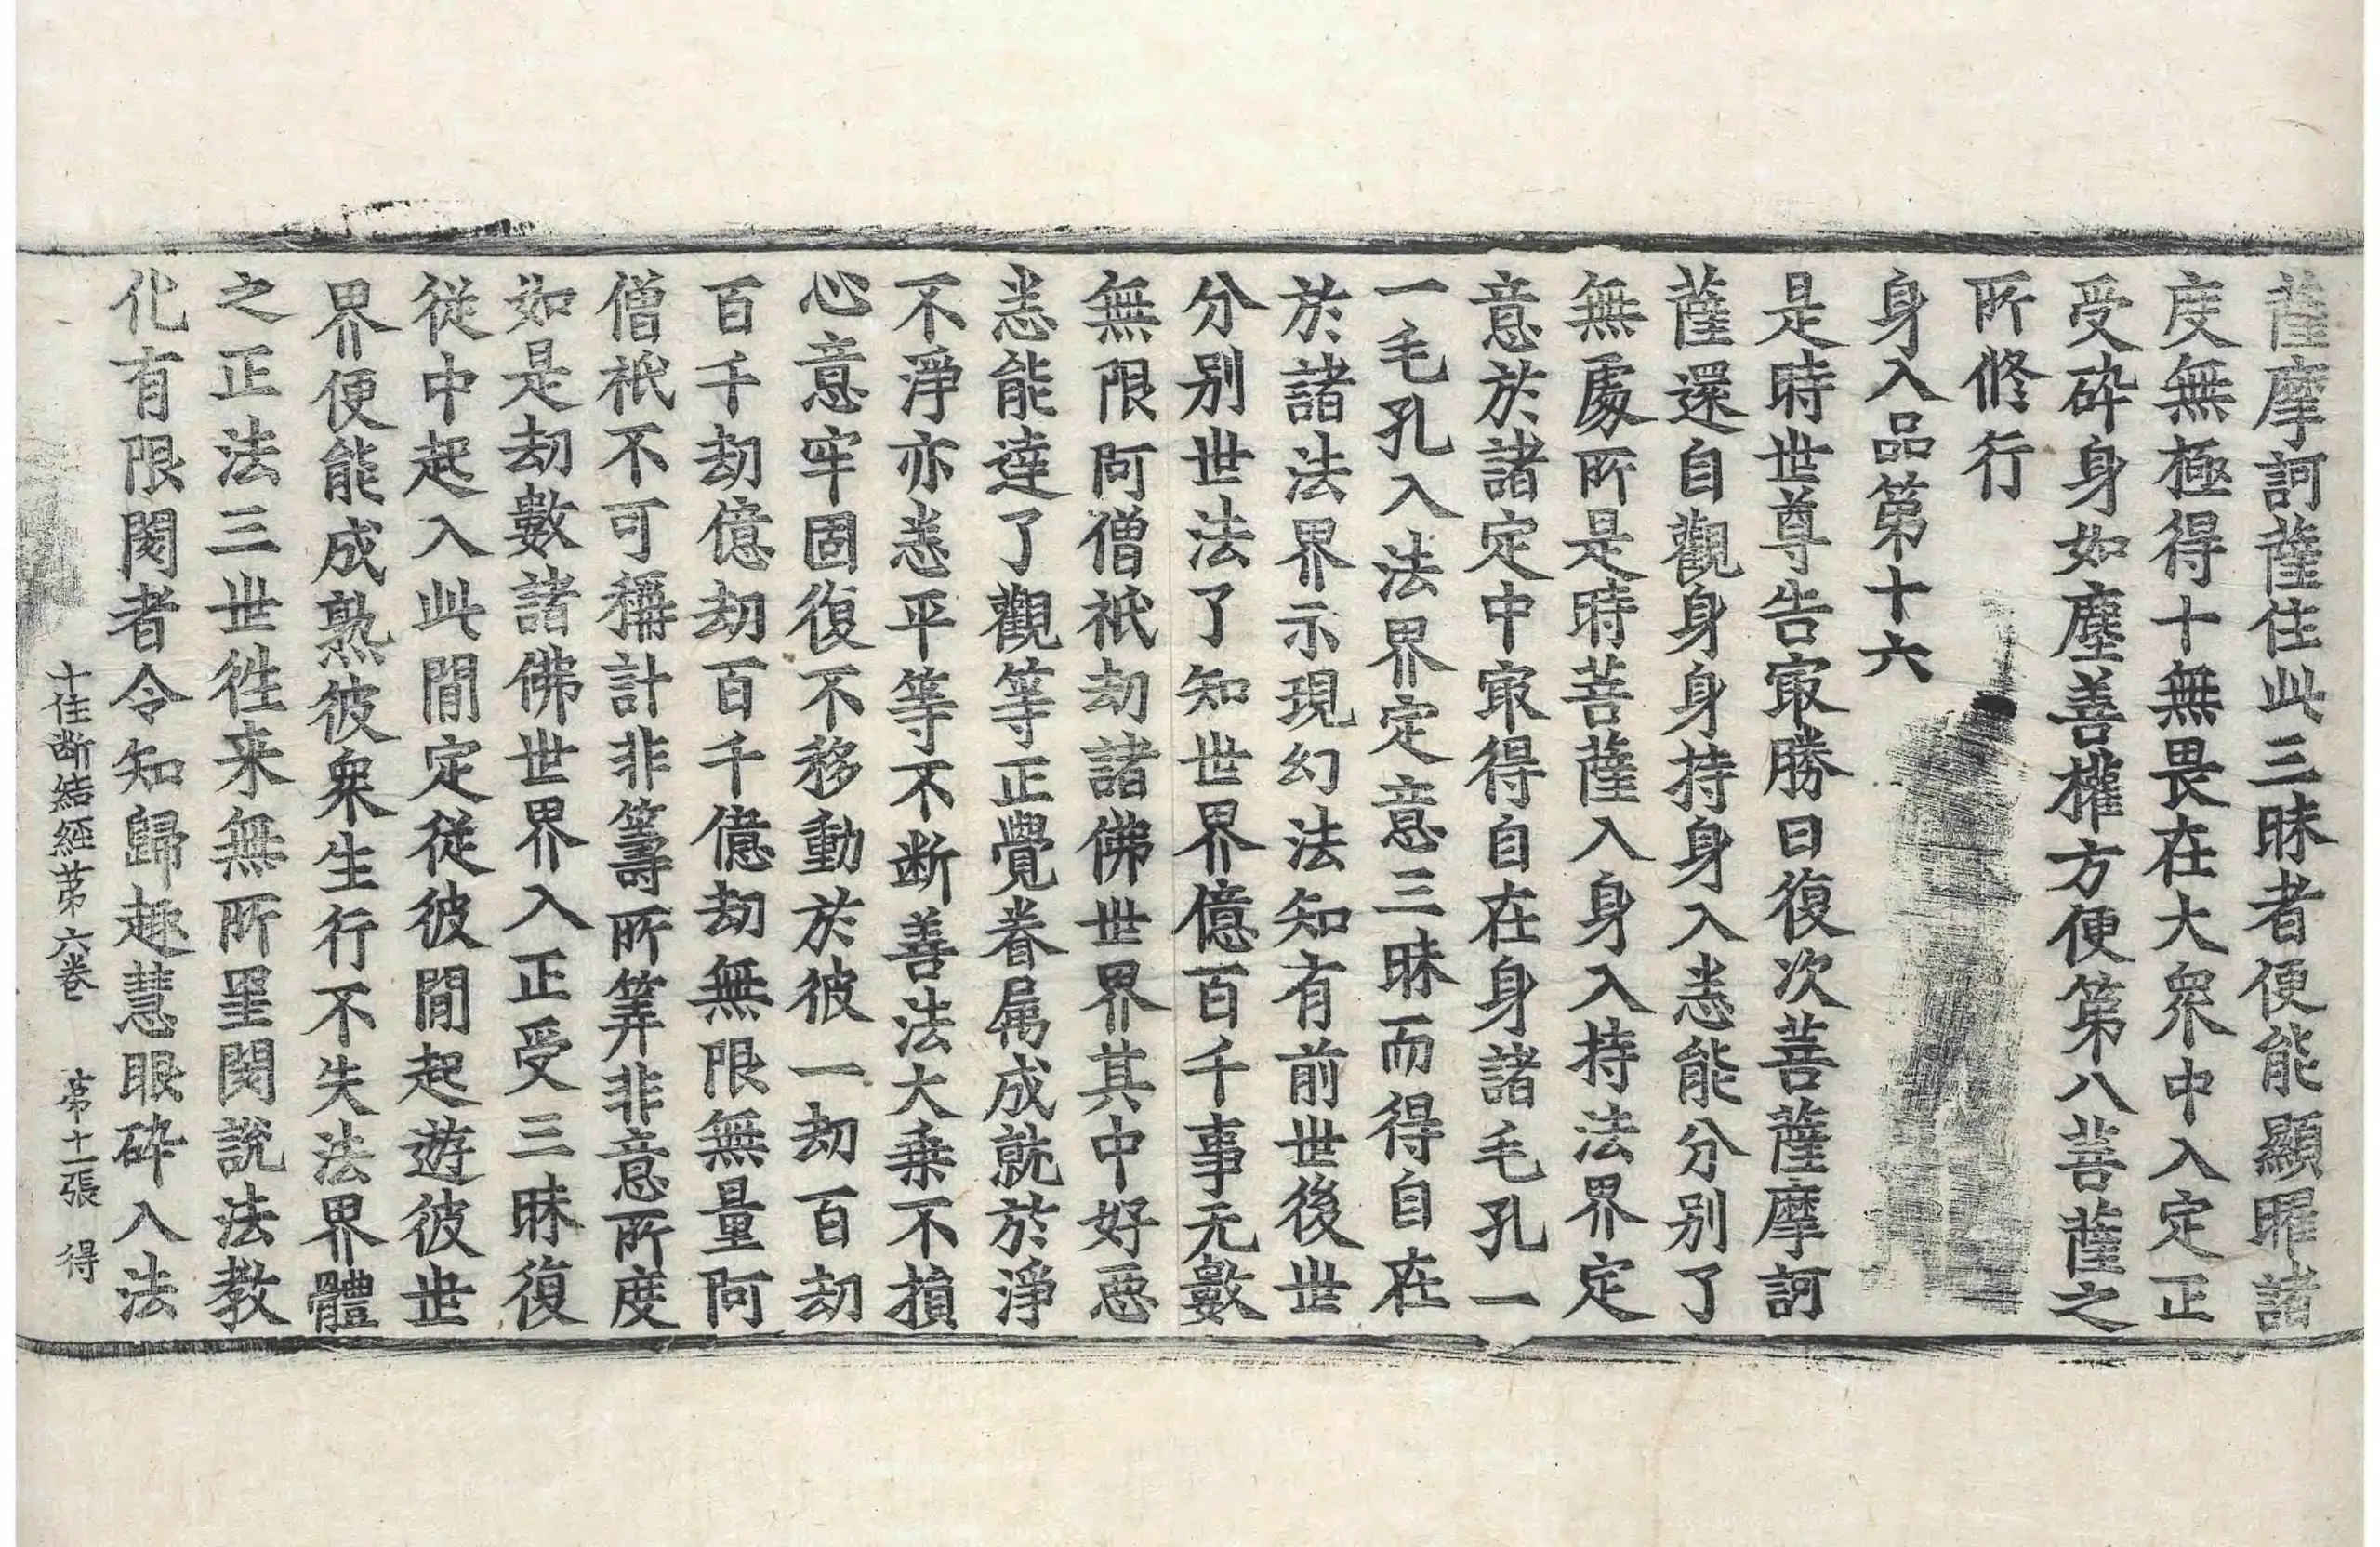 薩摩訶薩住此三昧者便能顯曜諸
度無極得十無畏在大衆中入定正
受碎身如塵善權方便第八菩薩之
所修行
身入品第十六
是時世尊告冣勝曰復次菩薩摩訶
薩還自觀身身持身入悉能分别了
無處所是時菩薩入身入持法界定
意於諸定中冣得自在身諸毛孔一
一毛孔入法界定意三昧而得自在
於諸法界示現幻法知有前世後世
分别世法了知世界億百千事无數
無限阿僧祇劫諸佛世界其中好惡
悉能達了觀等正覺眷属成就於淨
不淨亦悉平等不断善法大乗不損
心意牢固復不移動於彼一劫百劫
百千劫億劫百千億劫無限無量阿
僧祇不可稱計非籌所筭非意所度
如是劫數諸佛世界入正受三昧復
従中起入此間定従彼間起遊彼世
界便能成熟彼衆生行不失法界體
之正法三世徃来無所罣閡説法教
化有限閡者令知歸趣慧眼碎入法
十住断結經第六卷 第十一張 得